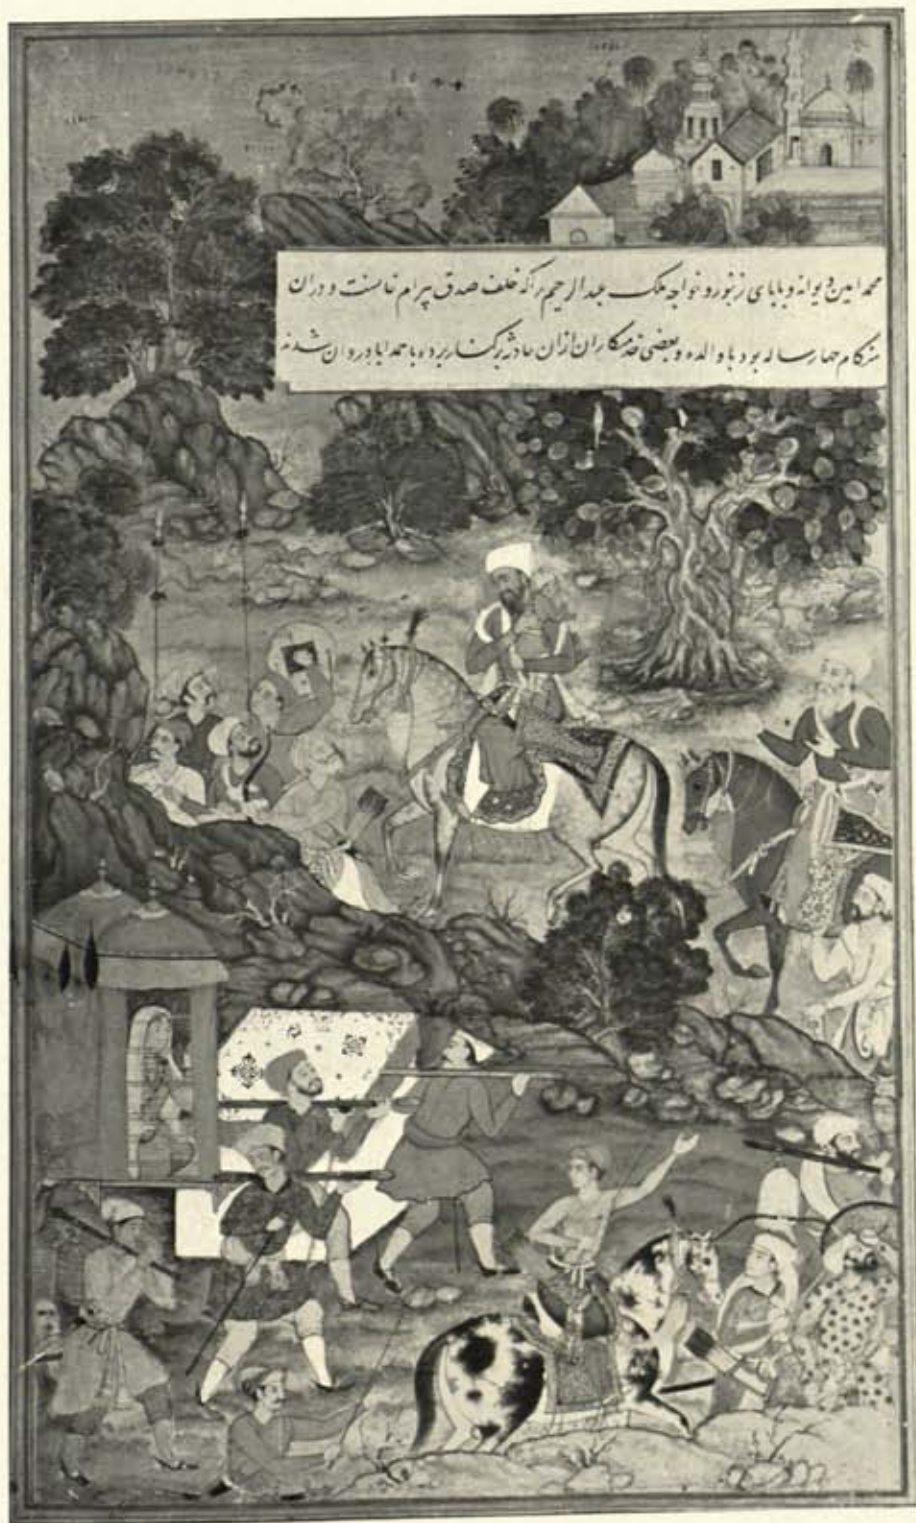 محمد امین دیوانه و بابای زنبور و خواجه ملک عبدالرحیم را که خلف صدق بیرام خانست و در آن
هنگام چهار ساله بود با والده و بعضی خدمتکاران ازان حادثه برکنار برده باحمداباد روان شدند